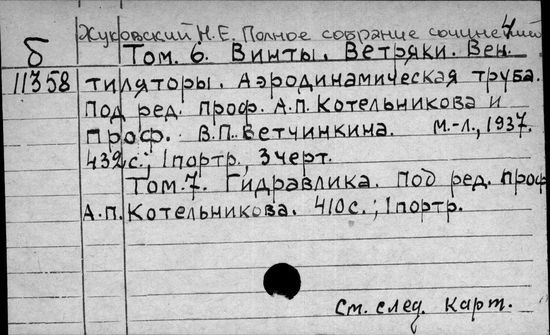 4
Жуковский Н.Е. Полное собрание сочинений
б Том. 6. Винты. Ветряки. Вен.
11358 тиляторы. Аэродинамическая труба.
Под ред. проф. А.П. Котельникова и
проф. В.П. Ветчинкина. М.-Л., 1937.
432 с.; 1 портр., 3 черт.
Том. 7. Гидравлика. Под ред. проф
А.П. Котельникова. 410 с.; 1 портр.
См. след. карт.